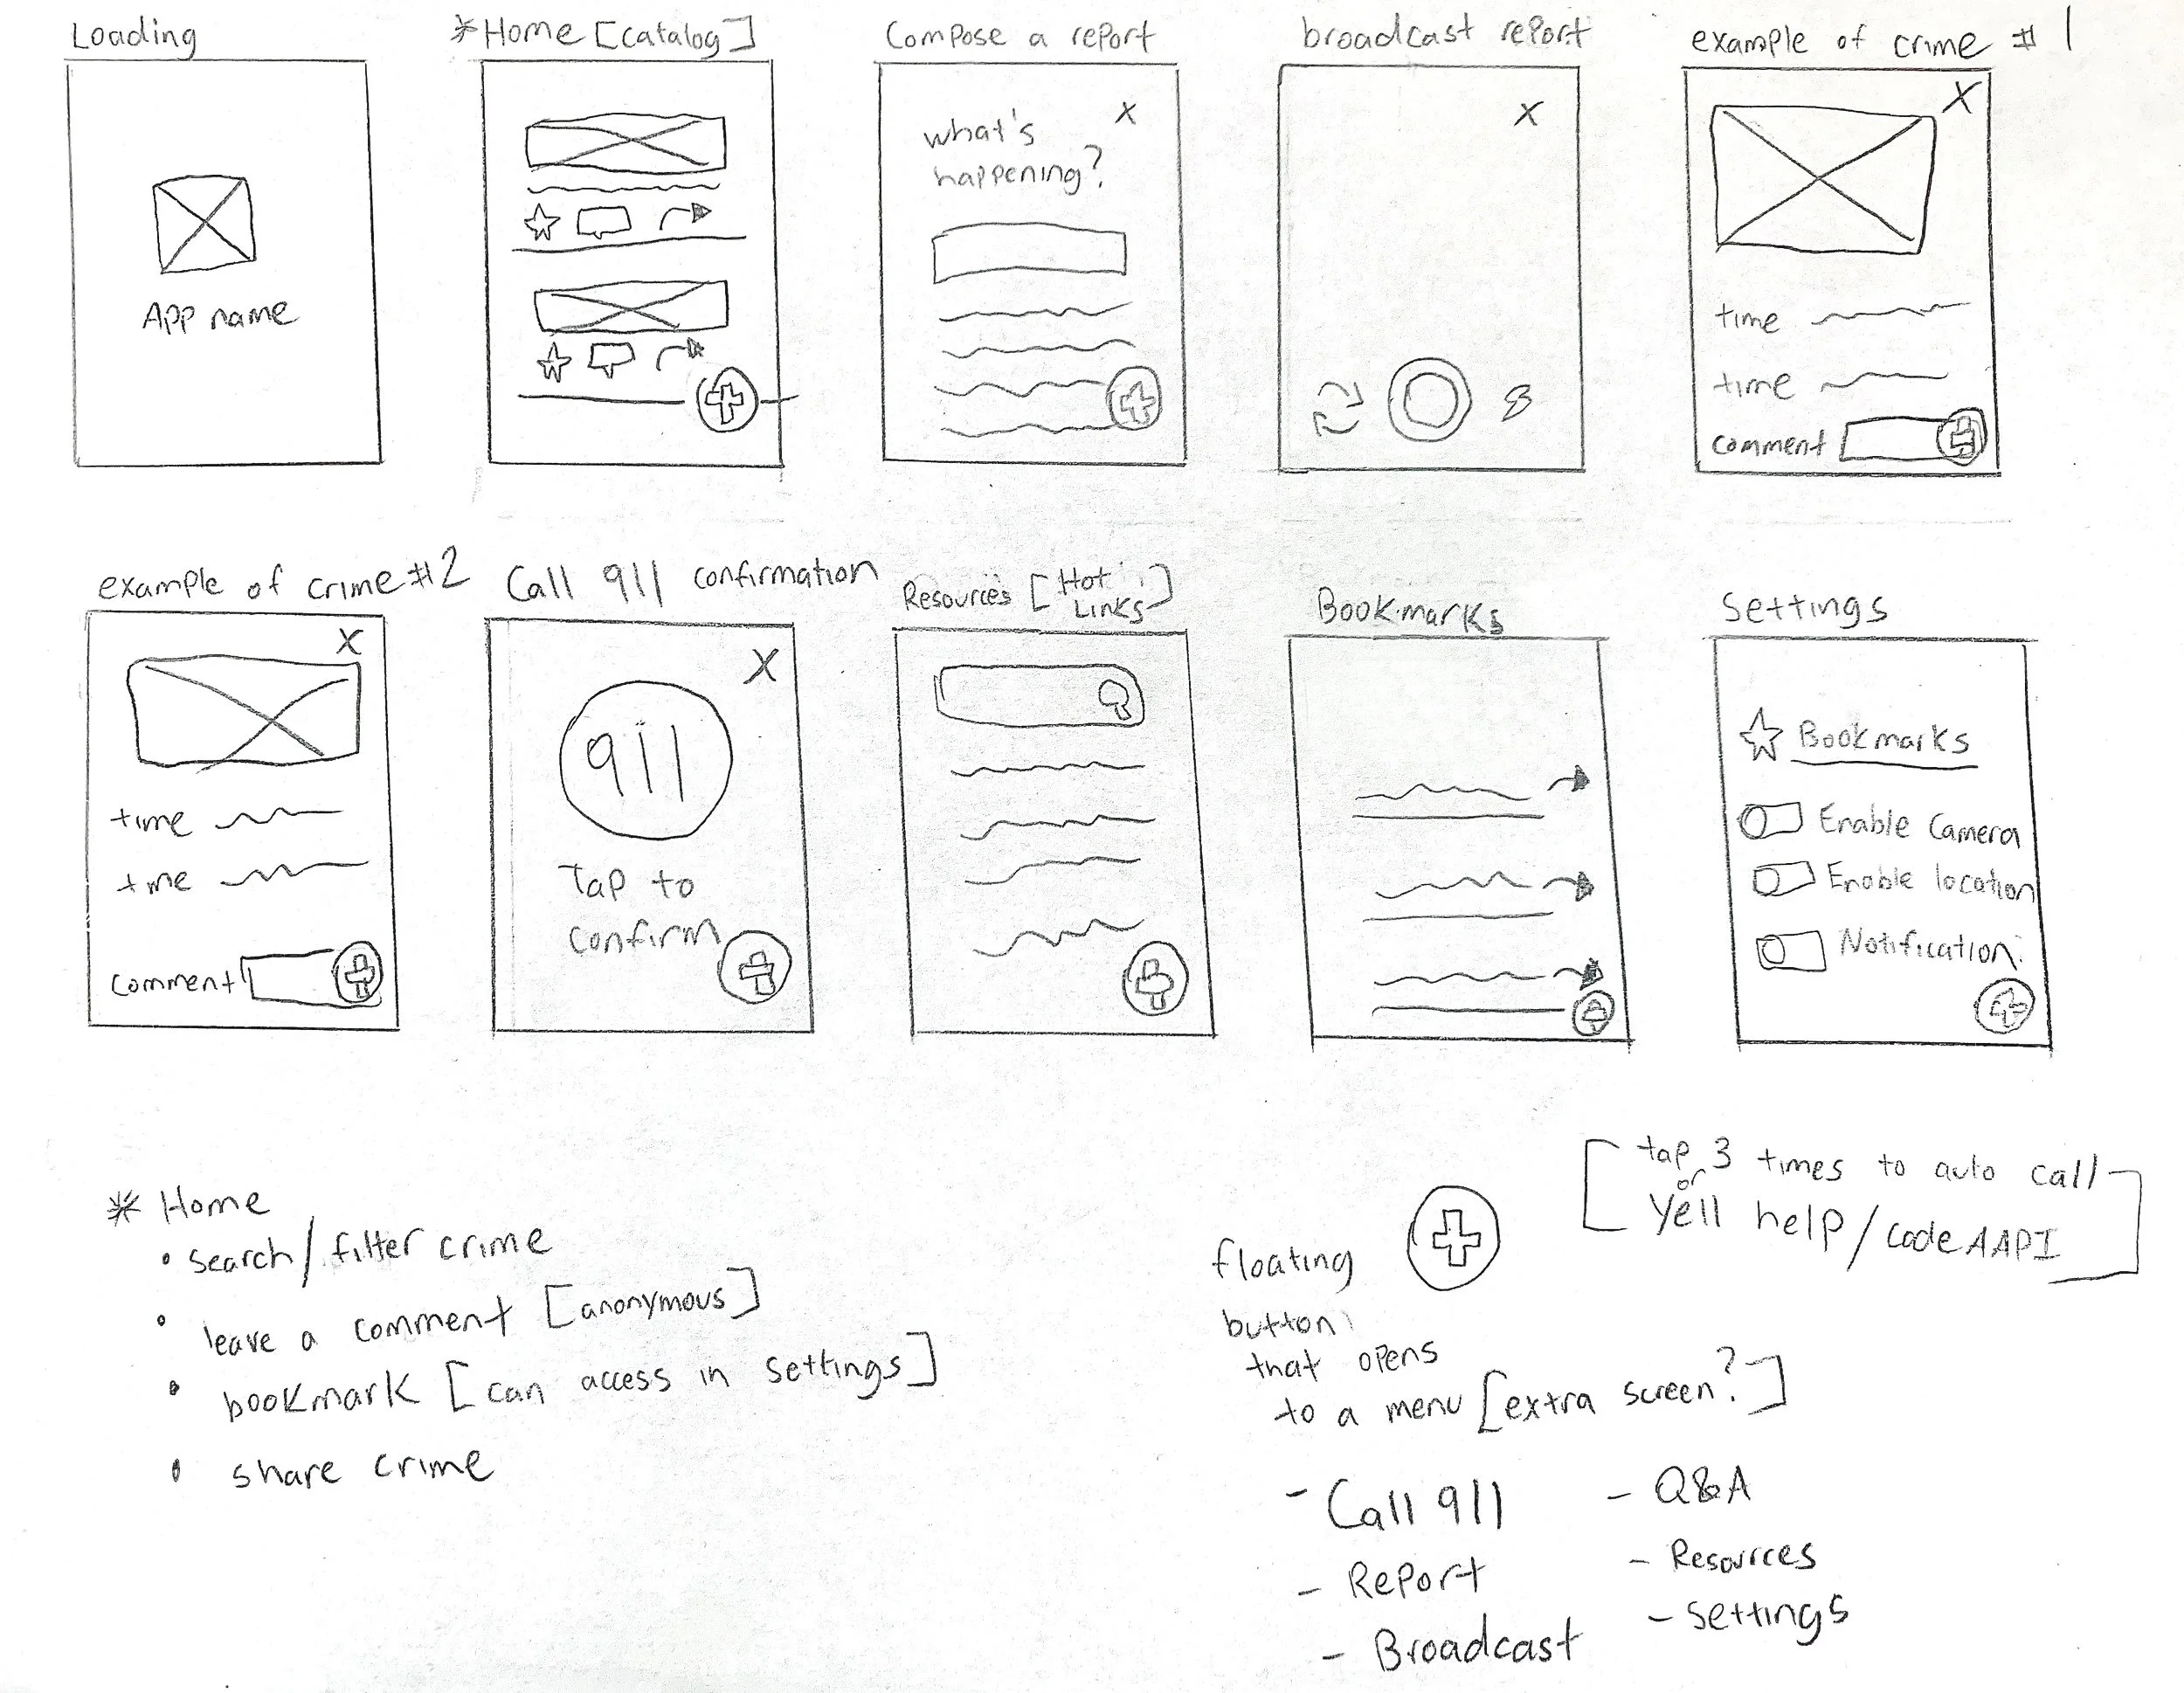 Loading
*Home [catalog]
Compose a report
broadcast report
example of crime #1
App name
what's
happening?
X
X
X
time
time
comment
example of crime #2
Call 911 confirmation
Resources [Hot
Links]
Bookmarks
Settings
X
time
time
comment
X
911
Tap to
confirm
Bookmarks
Enable Camera
Enable location
Notification
* Home
• search/filter crime
• leave a comment [anonymous]
• bookmark [can access in settings]
• share crime
floating
button
that opens
to a menu [extra screen?]
[tap 3 times to auto call
or
Yell help/code AAPI]
- Call 911
- Report
- Broadcast
- Q&A
- Resources
- Settings